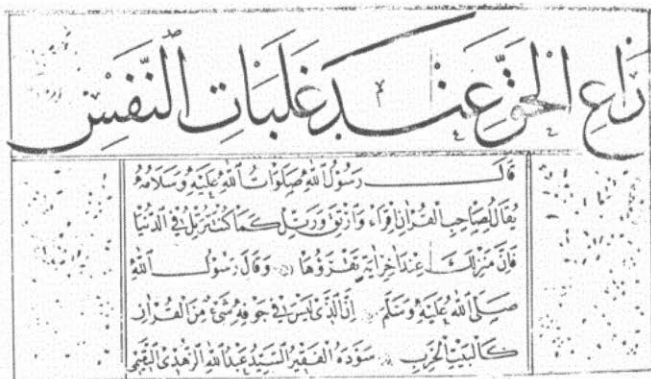 رَاعِ الْحَقَّ عِنْدَ غَلَبَاتِ النَّفْسِ
قَالَ رَسُولُ اللّٰهِ صَلَوَاتُ اللّٰهِ عَلَيْهِ وَسَلَامُهُ
يُقَالُ لِصَاحِبِ الْقُرْاٰنِ اِقْرَاءْ وَارْتَقِ وَرَتِّلْ كَمَا كُنْتَ تُرَتِّلُ فِي الدُّنْيَا
فَاِنَّ مَنْزِلَكَ عِنْدَ اٰخِرِ اٰيَةٍ تَقْرَؤُهَا وَقَالَ رَسُولُ اللّٰهِ
صَلَّى اللّٰهُ عَلَيْهِ وَسَلَّمَ اِنَّ الَّذِي لَيْسَ فِي جَوْفِهِ شَيْءٌ مِنَ الْقُرْاٰنِ
كَالْبَيْتِ الْخَرِبِ سَوَّدَهُ الْفَقِيرُ السَّيِّدُ عَبْدُ اللّٰهِ الزُّهْدِي